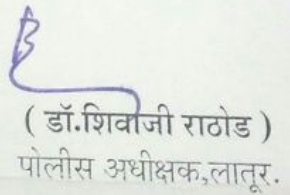 ( डॉ.शिवाजी राठोड )
पोलीस अधीक्षक,लातूर.